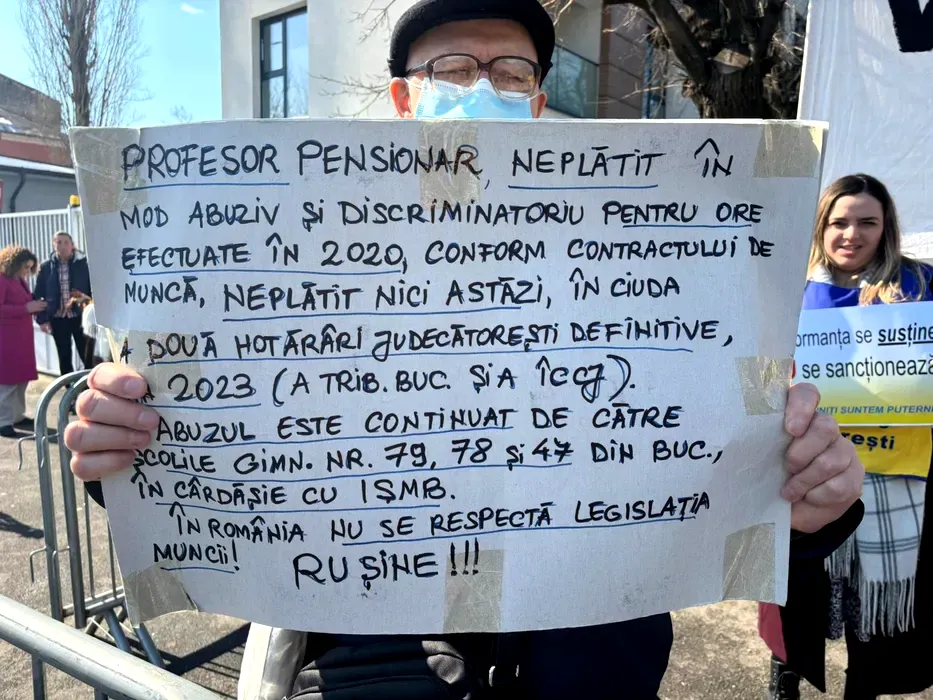 PROFESOR PENSIONAR, NEPLĂTIT ÎN
MOD ABUZIV ȘI DISCRIMINATORIU PENTRU ORE
EFECTUATE ÎN 2020, CONFORM CONTRACTULUI DE
MUNCĂ, NEPLĂTIT NICI ASTĂZI, ÎN CIUDA
A DOUĂ HOTĂRÂRI JUDECĂTOREȘTI DEFINITIVE,
2023 (A TRIB. BUC. ȘI A ÎCCJ).
ABUZUL ESTE CONTINUAT DE CĂTRE
ȘCOLILE GIMN. NR. 79, 78 ȘI 47 DIN BUC.,
ÎN CÂRDĂȘIE CU IȘMB.
ÎN ROMÂNIA NU SE RESPECTĂ LEGISLAȚIA
MUNCII! RUȘINE!!!
ormanța se susține
se sancționează
NIȚI SUNTEM PUTERNI
rești